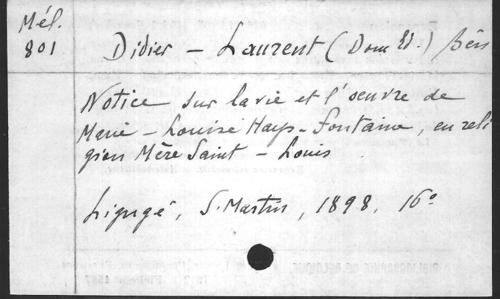 Mél.
801
Didier - Laurent (Dom Ed.) Bén
Notice sur la vie et l'oeuvre de
Marie - Louise Hays - Fontaine, en reli
gion Mère Saint - Louis
Ligugé, S. Martin, 1898. 16°